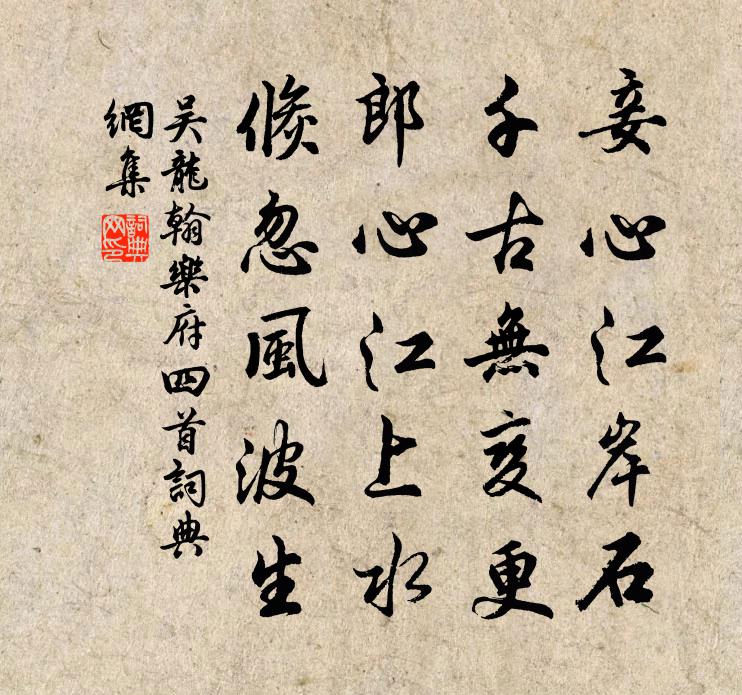 妾心江岸石
千古無変更
郎心江上水
倏忽風波生
吳龍翰樂府四首詞典
網集
詞典
网印